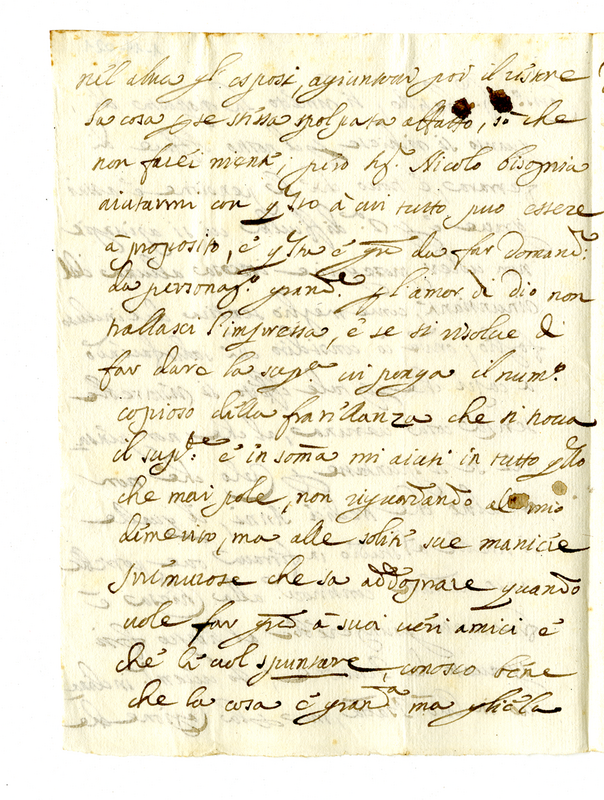 nel altra gl' esposi, agiuntovi poi il vedere
la cosa per se stessa spolpata affatto, so che
non farei niente, però Sr. Nicolo bisognia
aiutarmi con questo à cui tutto può essere
à proposito, è questa è gra da far domandr:
da personag.o grande. per l'amor di dio non
trallasci l'impressa, è se si risolve di
far dare la supca. vi ponga il num.o
copioso della fratellanza che si trova
il supte: è in soma mi aiuti in tutto quello
che mai pole, non riguardando al mio
demerito, ma alle solite sue maniere
premurose che sa addoprare quando
vole far gra à suoi veri amici è
che la vol spuntare, conosco bene
che la cosa è granda ma